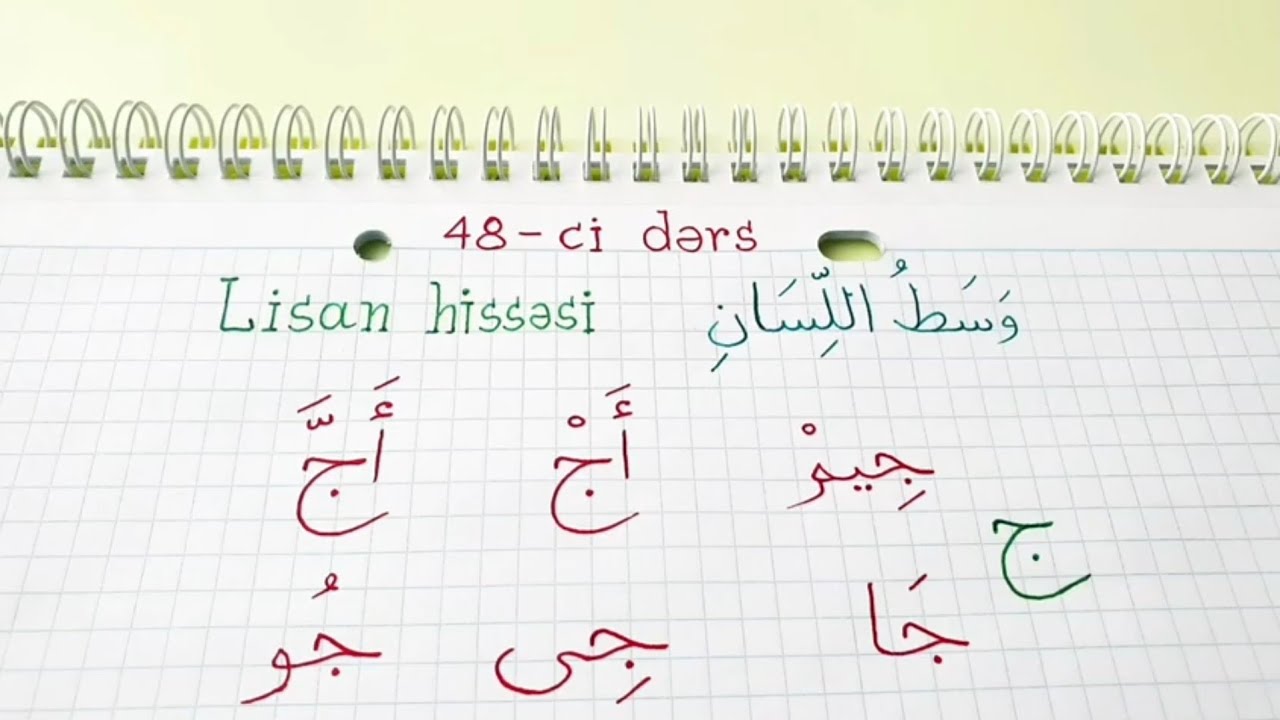 48-ci dərs
Lisan hissəsi وَسَطُ اللِّسَانِ
جِيمْ أَجْ أَجَّ
ج
جَا جِى جُو